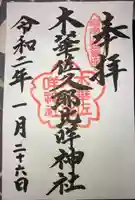 奉拝
木華佐久耶比咩神社
令和二年一月二十六日